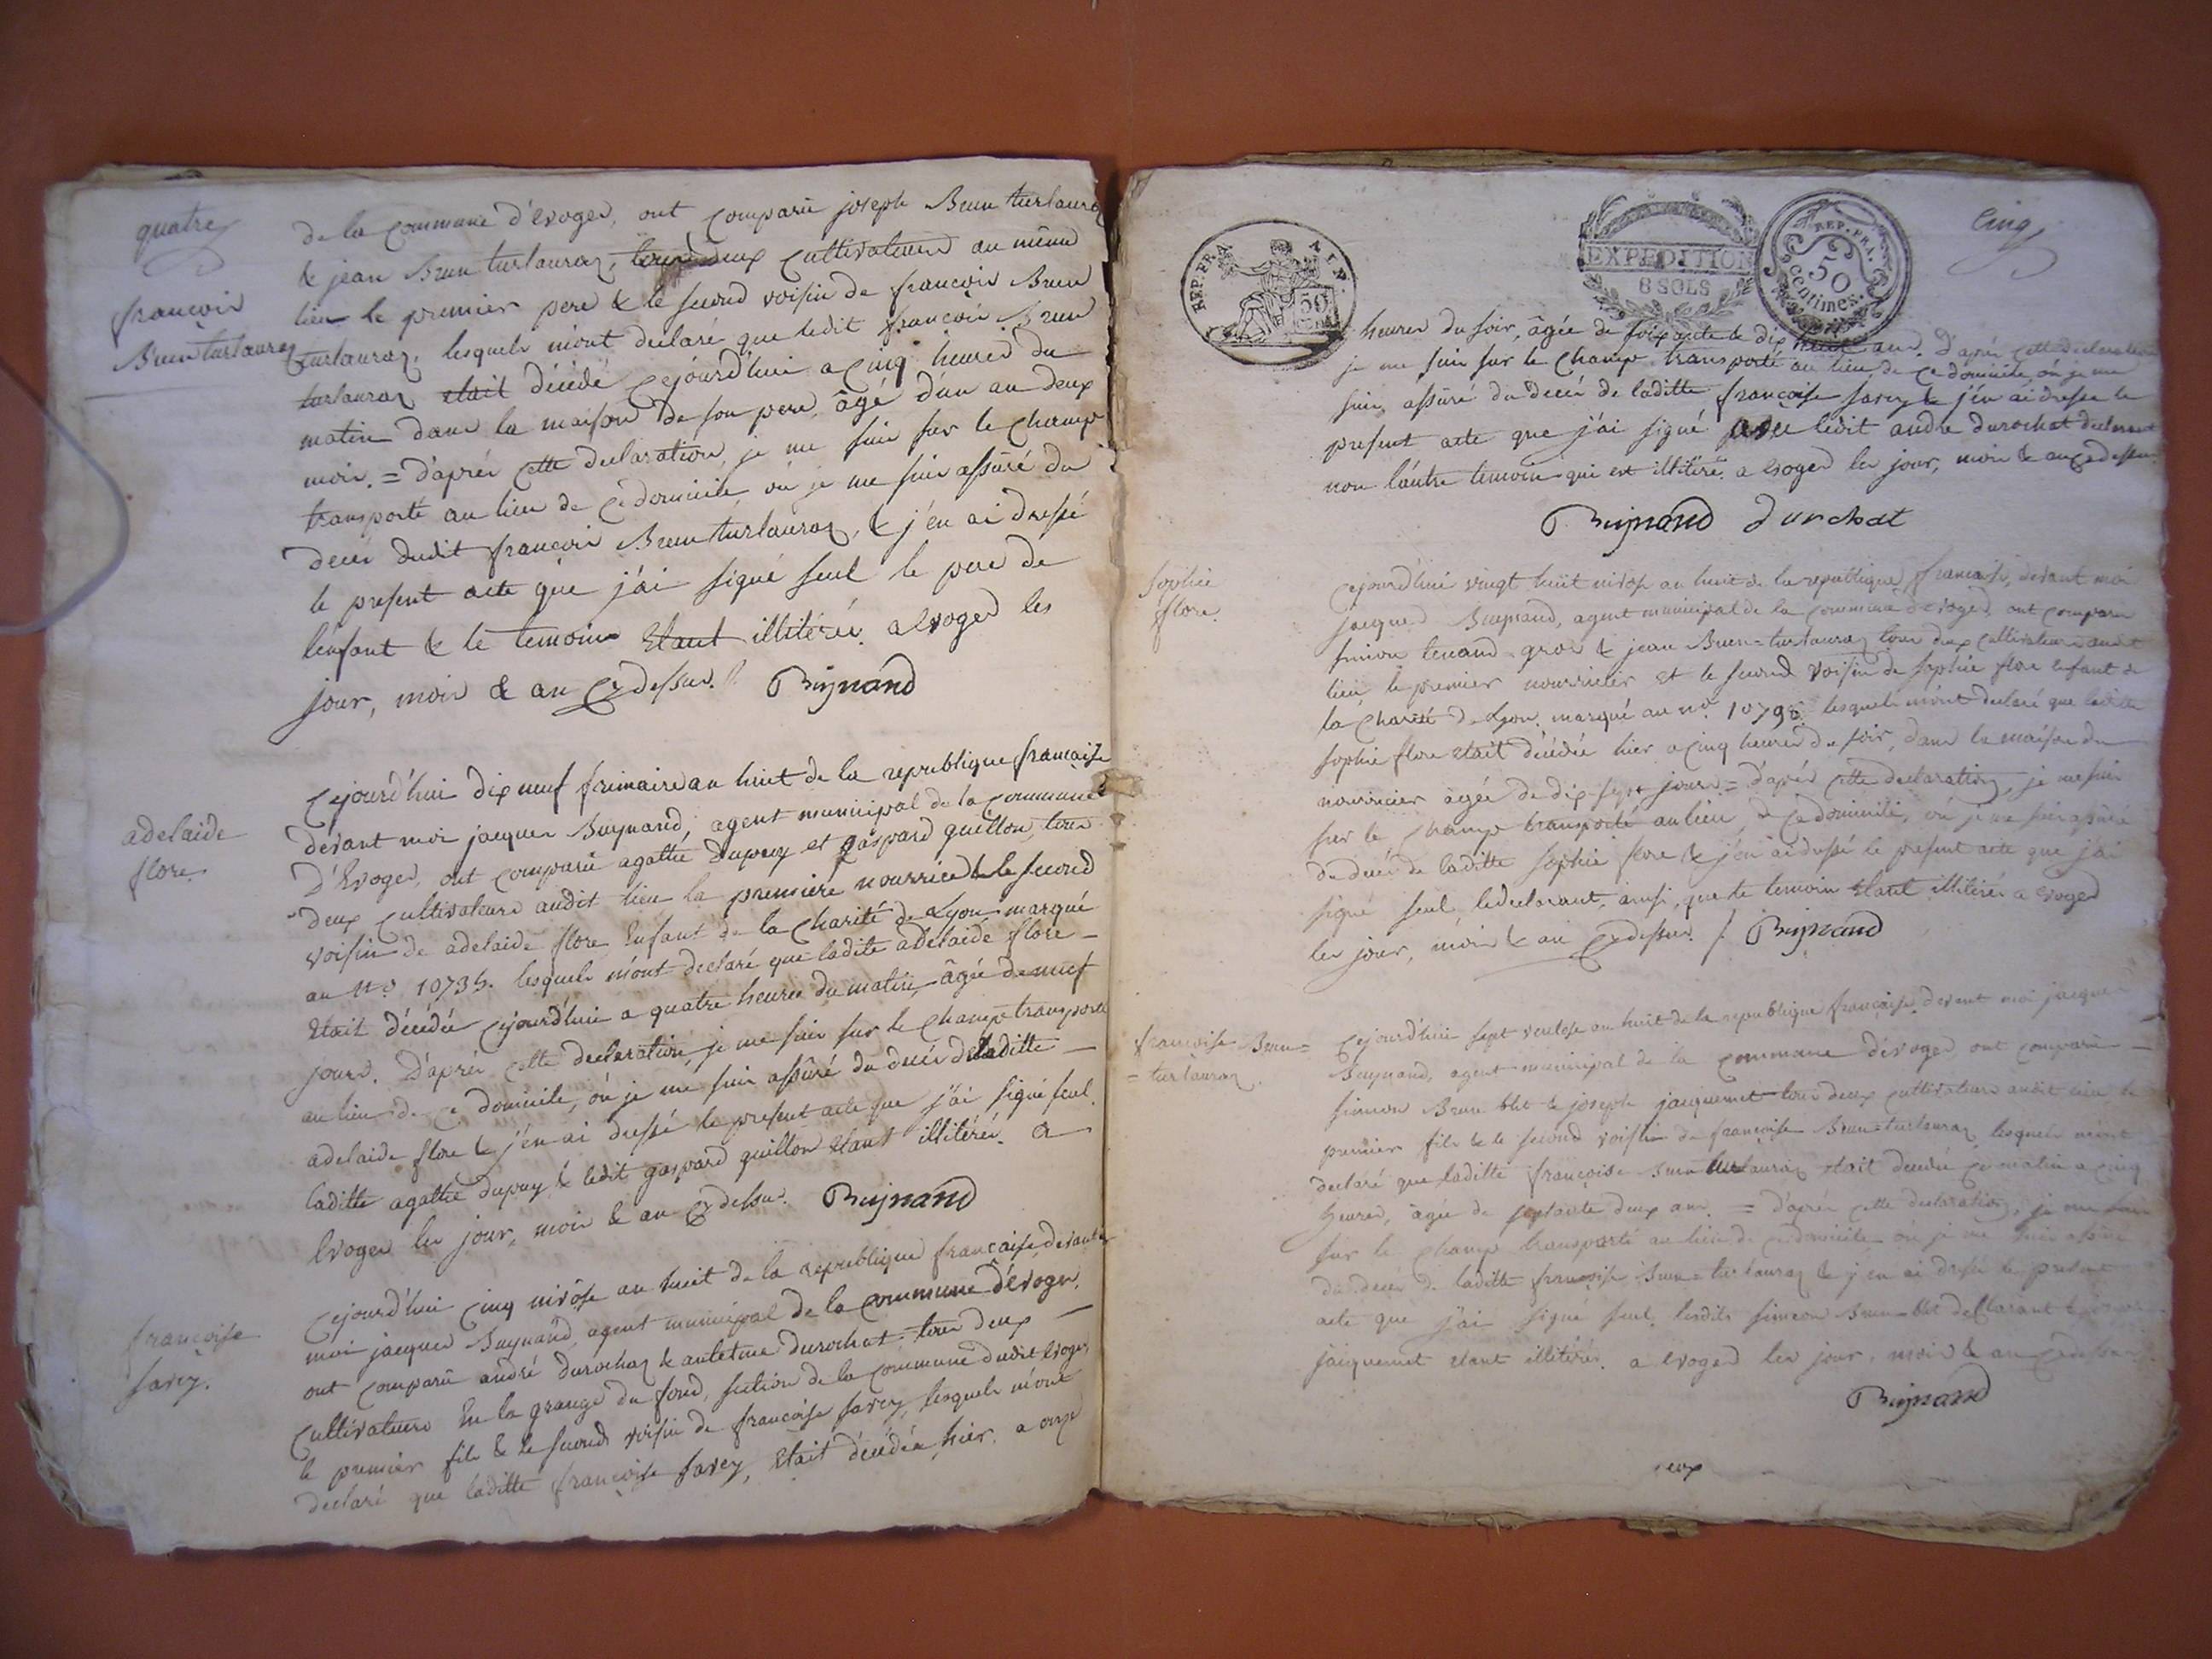 quatre
de la commune d'evoges, ont comparu joseph Brun turlauraz
& jean Brun turlauraz, tous deux cultivateurs au même
françois
Brun turlauraz
lieu le premier pere & le second voisin de françois Brun
turlauraz, lesquels m'ont declaré que ledit françois Brun
turlauraz etait décédé cejourd'hui a cinq heures du
matin dans la maison de son pere, âgé d'un an deux
mois. = d'après cette declaration, je me suis sur le champ
transporté au lieu de ce domicile où je me suis assuré du
deces dudit françois Brun turlauraz, & j'en ai dressé
le present acte que j'ai signé seul le pere de
l'enfant & le temoins etant illiterés. a evoges les
jour, mois & an cy dessus. Buynand
adelaide
flore.
Cejourd'hui dix neuf frimaire an huit de la republique française
devant moi jacques Buynand, agent municipal de la commune
d'Evoges, ont comparu agathe dupuy et gaspard guillon, tous
deux cultivateurs audit lieu la premiere nourrice & le second
voisin de adelaide flore Enfant de la charité de Lyon marqué
au N.º 10735. lesquels m'ont declaré que ladite adelaide flore
etait décédée cejourd'hui a quatre heures du matin, âgée de neuf
jours. D'après cette declaration, je me suis sur le champ transporté
au lieu de ce domicile, où je me suis assûré du deces deladitte
adelaide flore & j'en ai dressé le present acte que j'ai signé seul.
laditte agathe dupuy & ledit gaspard guillon etant illitérés. a
Evoges les jour, mois & an cy dessus. Buynand
françoise
favey.
Cejourd'hui cinq nivôse an huit de la republique française, devant
moi jacques Buynand agent municipal de la commune d'evoges,
ont comparu andré durochat & antelme durochat tous deux
cultivateurs En la grange du fond, section de la commune dudit Evoges
le premier fils & le second voisin de françoise favey, lesquels m'ont
declaré que laditte françoise favey, etait décédée hier, a onze
cinq
REP. FRA.
50
EXPEDITION
8 SOLS
REP. FRA.
50
centimes.
heures du soir, âgée de soixante & dix neuf ans. D'après cette declaration
je me suis sur le champ transporté au lieu de ce domicile où je me
suis assûré du decés de laditte françoise favey & j'en ai dressé le
present acte que j'ai signé avec ledit andré durochat declarant
non l'autre temoin qui est illitéré. a evoges les jour, mois & an cy dessus
Buynand durchat
sophie
flore.
Cejourd'hui vingt huit nivose an huit de la republique française, devant moi
jacques Buynand, agent municipal de la commune d'evoges, ont comparu
simon tenand-gros & jean Brun-turlauraz tous deux cultivateurs audit
lieu le premier nourricier et le second voisin de sophie flore enfant de
la Charité de Lyon marqué au nº. 10798 lesquels m'ont declaré que laditte
sophie flore etait décédée hier a cinq heures du soir, dans la maison du
nourricier âgée de dix sept jours = d'après cette declaration, je me suis
sur le champ transporté au lieu de ce domicile, où je me suis assûré
du deces de laditte sophie flore & j'en ai dressé le present acte que j'ai
signé seul, le declarant, ainsi, que le temoin etant illitérés a evoges
les jour, mois & an cy dessus. / Buynand
françoise Brun=
=turlauraz.
Cejourd'hui sept ventose an huit de la republique française, devant moi jacques
Buynand, agent municipal de la commune d'evoges ont comparu
simeon Brun blet & joseph jacquemet tous deux cultivateurs audit lieu le
premier fils & le second voisin de françoise Brun=turlauraz lesquels m'ont
declaré que laditte françoise Brun turlauraz etait decedée ce matin a cinq
heures, âgée de septante deux ans. = d'après cette declaration, je me suis
sur le champ transporté au lieu de ce domicile où je me suis assûré
du deces de laditte françoise Brun=turlauraz & j'en ai dressé le present
acte que j'ai signé seul, lesdits simeon Brun-blet declarant &
jacquemet etant illitérés. a evoges les jour, mois & an cy dessus
Buynand